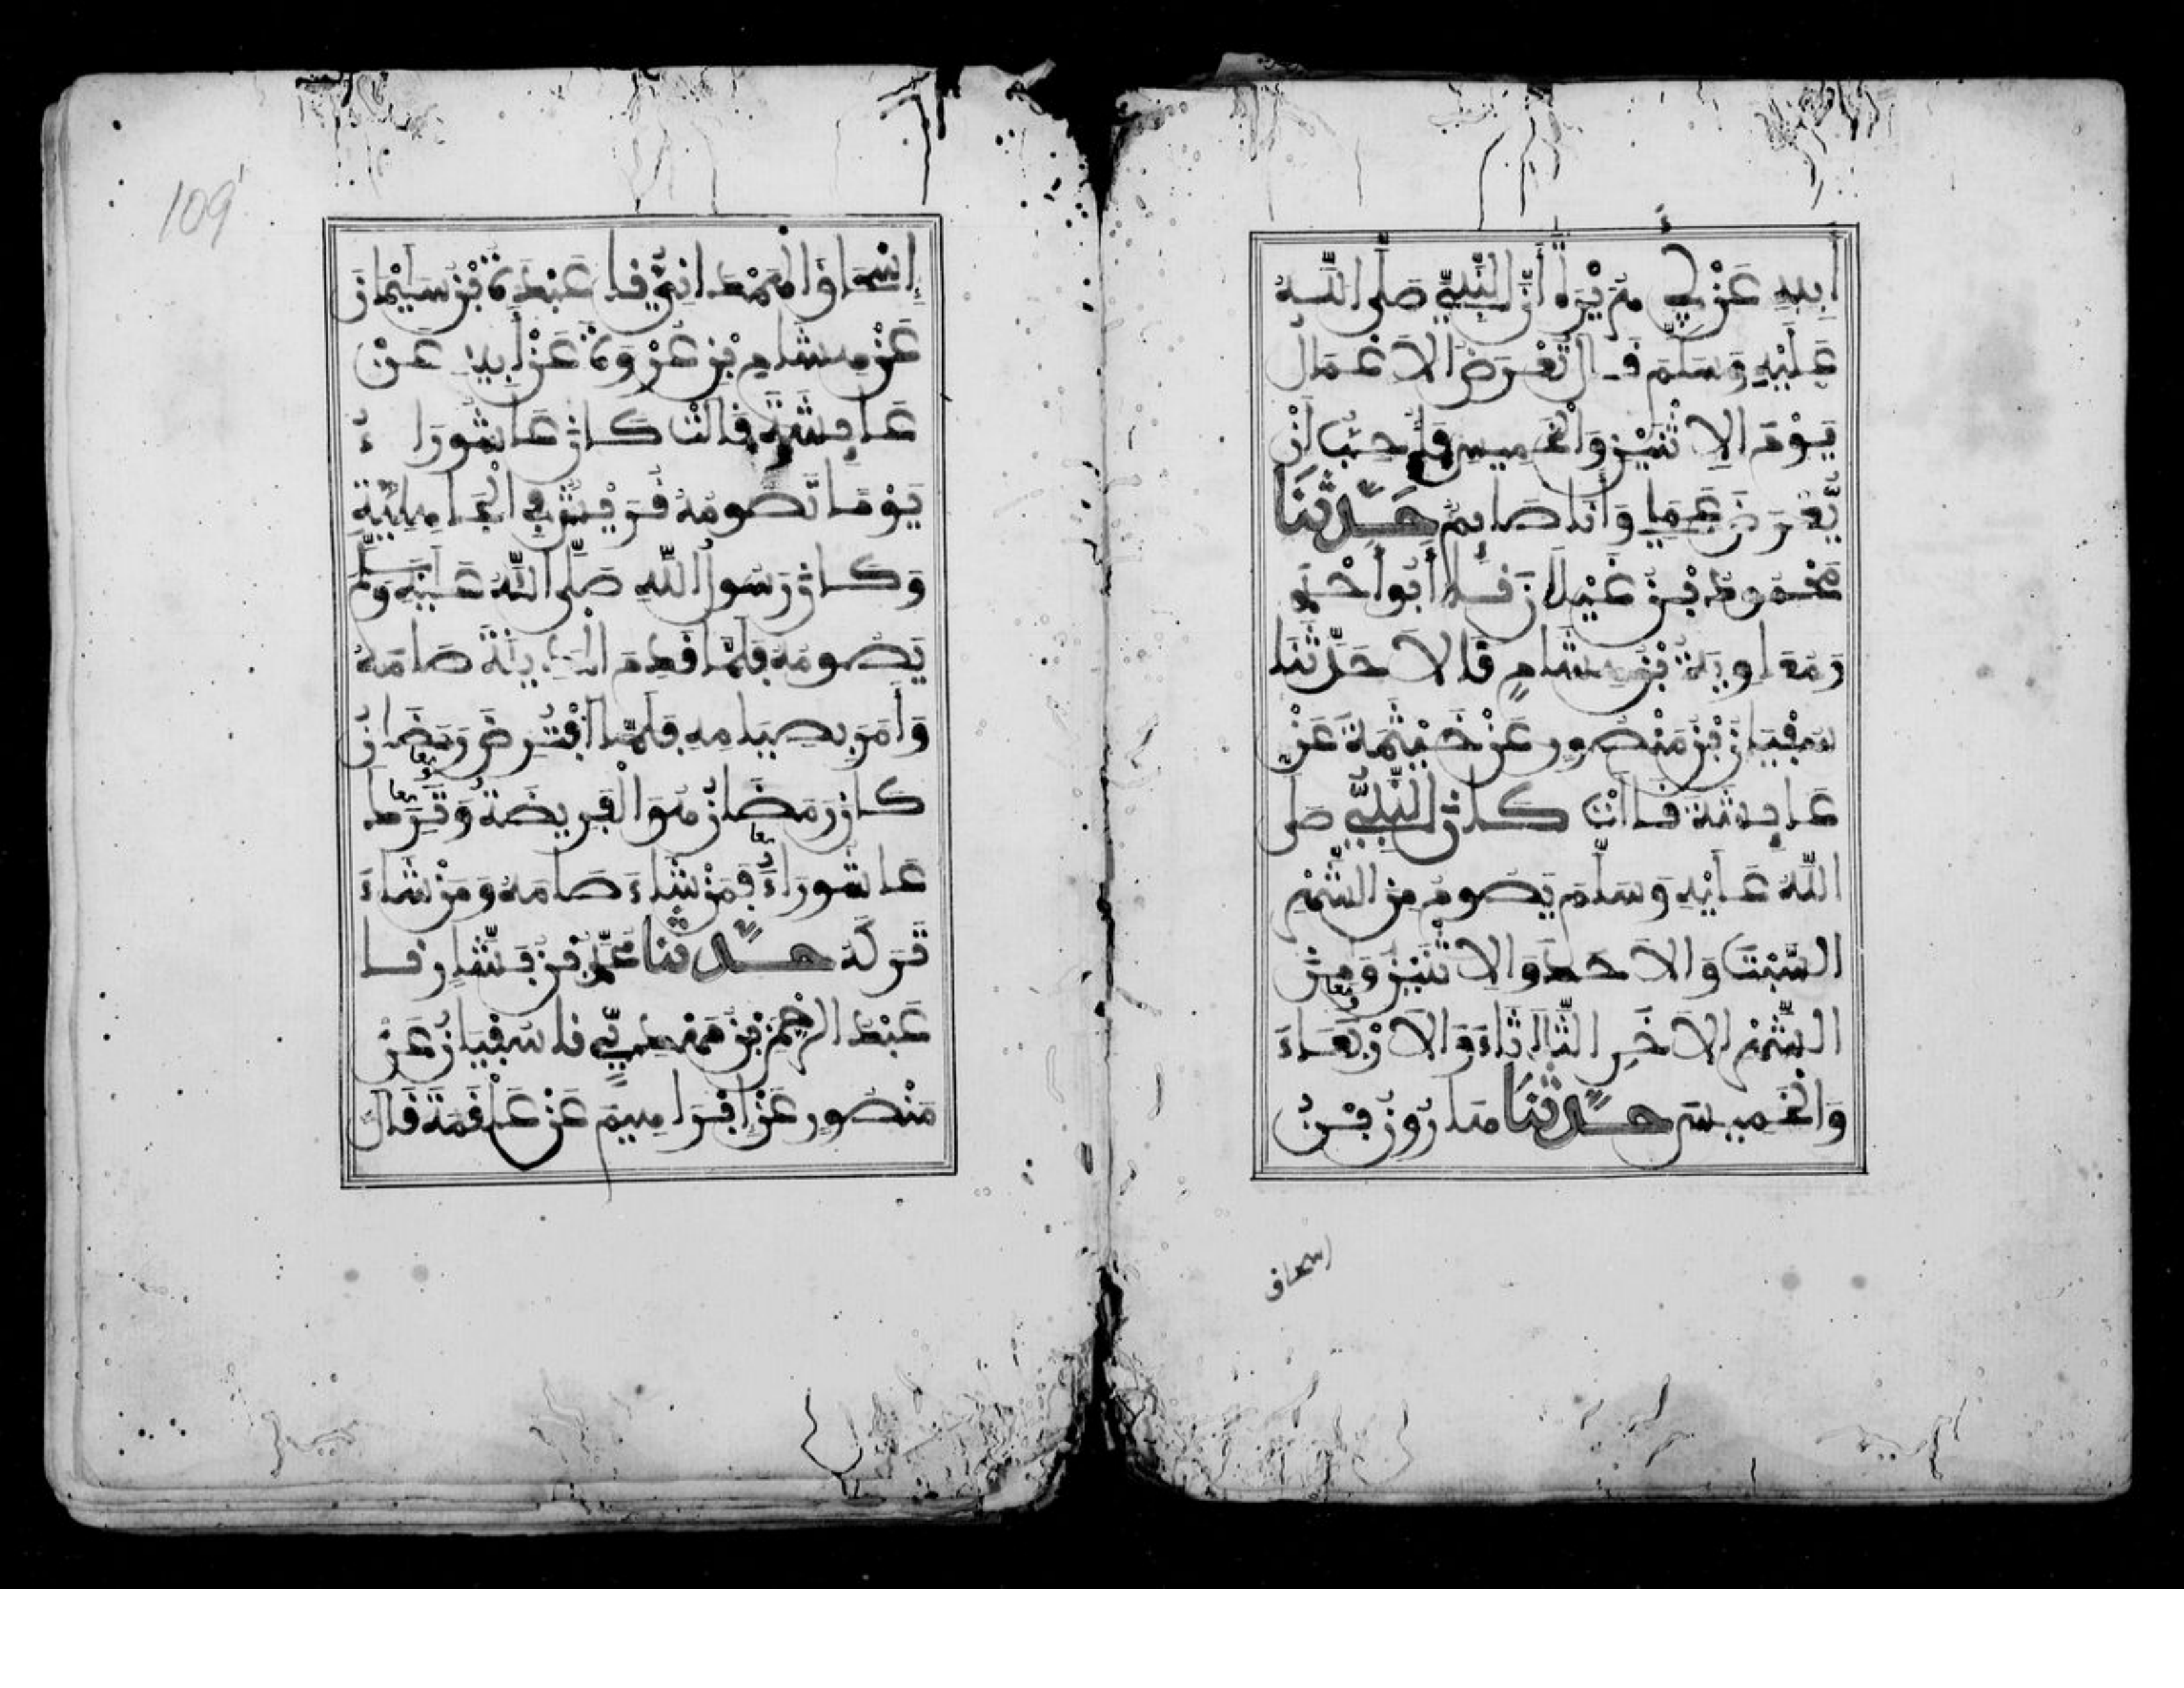 أَبِيهِ عَنْ أَبِي هُرَيْرَةَ أَنَّ النَّبِيَّ صَلَّى اللَّهُ
عَلَيْهِ وَسَلَّمَ قَالَ تُعْرَضُ الْأَعْمَالُ
يَوْمَ الِاثْنَيْنِ وَالْخَمِيسِ فَأُحِبُّ أَنْ
يُّعْرَضَ عَمَلِي وَأَنَا صَائِمٌ حَدَّثَنَا
مَحْمُودُ بْنُ غَيْلَانَ نَا أَبُو أَحْمَدَ
وَمُعَاوِيَةُ بْنُ هِشَامٍ قَالَا حَدَّثَنَا
سُفْيَانُ بْنُ مَنْصُورٍ عَنْ خَيْثَمَةَ عَنْ
عَائِشَةَ قَالَتْ كَانَ النَّبِيُّ صَلَّى
اللَّهُ عَلَيْهِ وَسَلَّمَ يَصُومُ مِنَ الشَّهْرِ
السَّبْتَ وَالْأَحَدَ وَالِاثْنَيْنِ وَمِنَ
الشَّهْرِ الْآخَرِ الثَّلَاثَاءَ وَالْأَرْبَعَاءَ
وَالْخَمِيسَ حَدَّثَنَا هَارُونُ بْنُ
اسحاق
109
إِسْحَاقَ الْهَمْدَانِيُّ نَا عَبْدَةُ بْنُ سُلَيْمَانَ
عَنْ هِشَامِ بْنِ عُرْوَةَ عَنْ أَبِيهِ عَنْ
عَائِشَةَ قَالَتْ كَانَ عَاشُورَاءُ
يَوْمًا تَصُومُهُ قُرَيْشٌ فِي الْجَاهِلِيَّةِ
وَكَانَ رَسُولُ اللَّهِ صَلَّى اللَّهُ عَلَيْهِ وَسَلَّمَ
يَصُومُهُ فَلَمَّا قَدِمَ الْمَدِينَةَ صَامَهُ
وَأَمَرَ بِصِيَامِهِ فَلَمَّا افْتُرِضَ رَمَضَانُ
كَانَ رَمَضَانُ هُوَ الْفَرِيضَةُ وَتُرِكَ
عَاشُورَاءُ فَمَنْ شَاءَ صَامَهُ وَمَنْ شَاءَ
تَرَكَهُ حَدَّثَنَا مُحَمَّدُ بْنُ بَشَّارٍ نَا
عَبْدُ الرَّحْمَنِ بْنُ مَهْدِيٍّ نَا سُفْيَانُ عَنْ
مَنْصُورٍ عَنْ إِبْرَاهِيمَ عَنْ عَلْقَمَةَ قَالَ